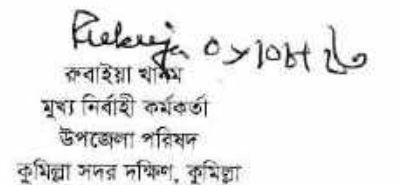 রুবাইয়া খানম
মুখ্য নির্বাহী কর্মকর্তা
উপজেলা পরিষদ
কুমিল্লা সদর দক্ষিণ, কুমিল্লা